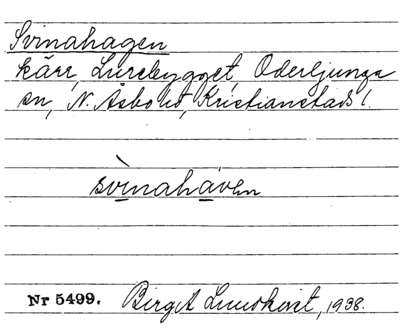 Svinahagen
kärr, Lurebygget, Oderljunga
sn, N. Åsbo hd, Kristianstads l.
svìnahàven
Nr 5499. Birgit Lundkvist, 1938.